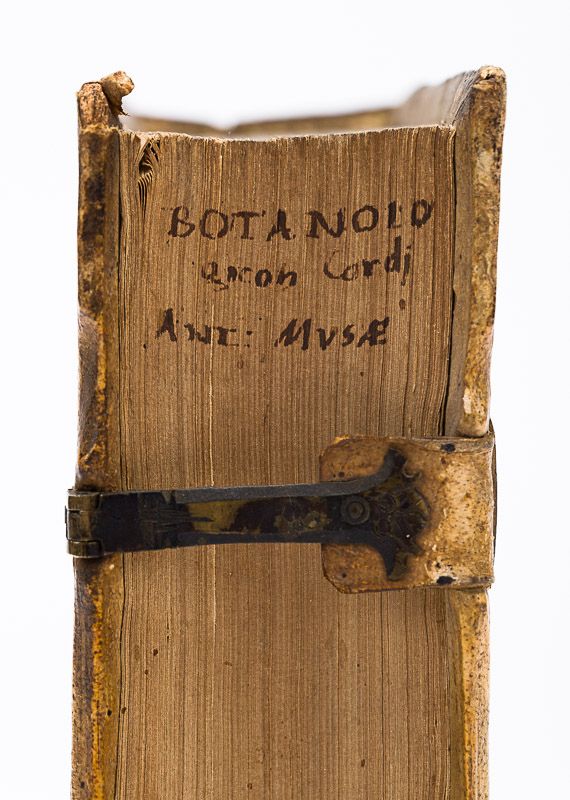 BOTANOLO
gicon Cordj
ANT: MVSÆ